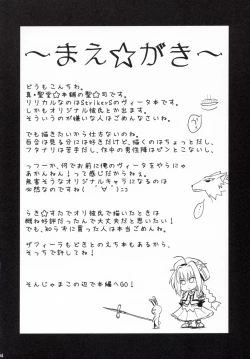 ～まえ☆がき～
どうもこんちわ。
真・聖堂☆本舗の聖☆司です。
リリカルなのはStrikerSのヴィータ本です。
しかもオリ彼氏とか出ます。
そういうのが嫌いな人はごめんなさいね。
でも描きたいから仕方ないのね。
百合は見る分にはまだけど、描くのはちょっとだし、
フタナリは苦手だし、作中の男性陣はピンとこないし、
っつーか、何でお前に俺のヴィータをやらにゃ
あかんねん!って感じだからねぇ。
無害そうなオリジナルキャラになるのは
必然なのですね(
らき☆すたでオリ彼氏で描いたときは
概ね好評だったので大丈夫だと思いたい!
でも、知らずに買った人は本当ごめんね。
ザフィーラもどきとのえち本もあるから、
そっちで許してね!
そんじゃまこの辺で本編へGO!